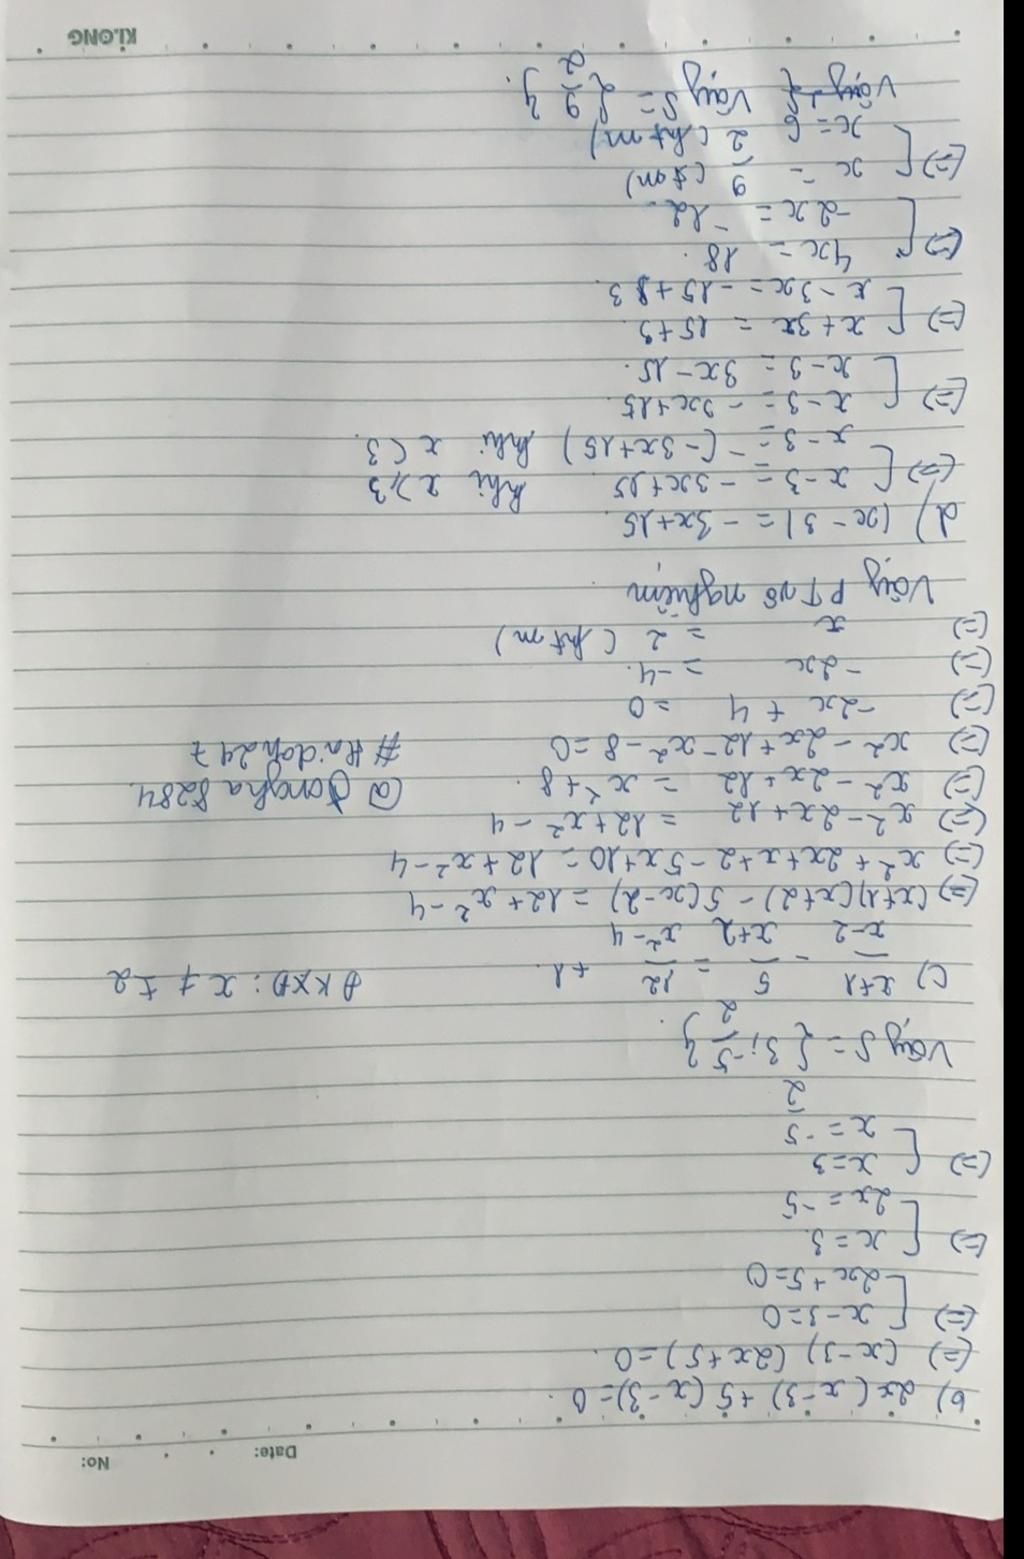 No:
Date:
b) 2x(x-3)+5(x-3)=0.
(=) (x-3)(2x+5)=0.
(=) [ x-3=0
2x+5=0
(=) [ x=3.
2x=-5
(=) [ x=3
x=-5/2
Vậy S={3;-5/2}.
c) x+1/x-2 - 5/x+2 = 12/x²-4 +1. ĐKXĐ: x ≠ ±2
(=) (x+1)(x+2) - 5(x-2) = 12+x²-4
(=) x²+2x+x+2-5x+10=12+x²-4
(=) x²-2x+12 = 12+x²-4
(=) x²-2x+12 = x²+8. @dongha8284.
(=) x²-2x+12-x²-8=0 #Hoidap247
(=) -2x+4 =0
(=) -2x =-4.
(=) x = 2 (ktm)
Vậy PT vô nghiệm
d) |x-3|=-3x+15
(=) [ x-3=-3x+15 khi x⩾3
x-3=-(-3x+15) khi x<3.
(=) [ x-3=-3x+15
x-3=3x-15.
(=) [ x+3x=15+3
x-3x=-15+3.
(=) [ 4x=18.
-2x=-12
(=) [ x=9/2 (tm)
x=6 (ktm)
Vậy Vậy S={9/2}.
KLONG